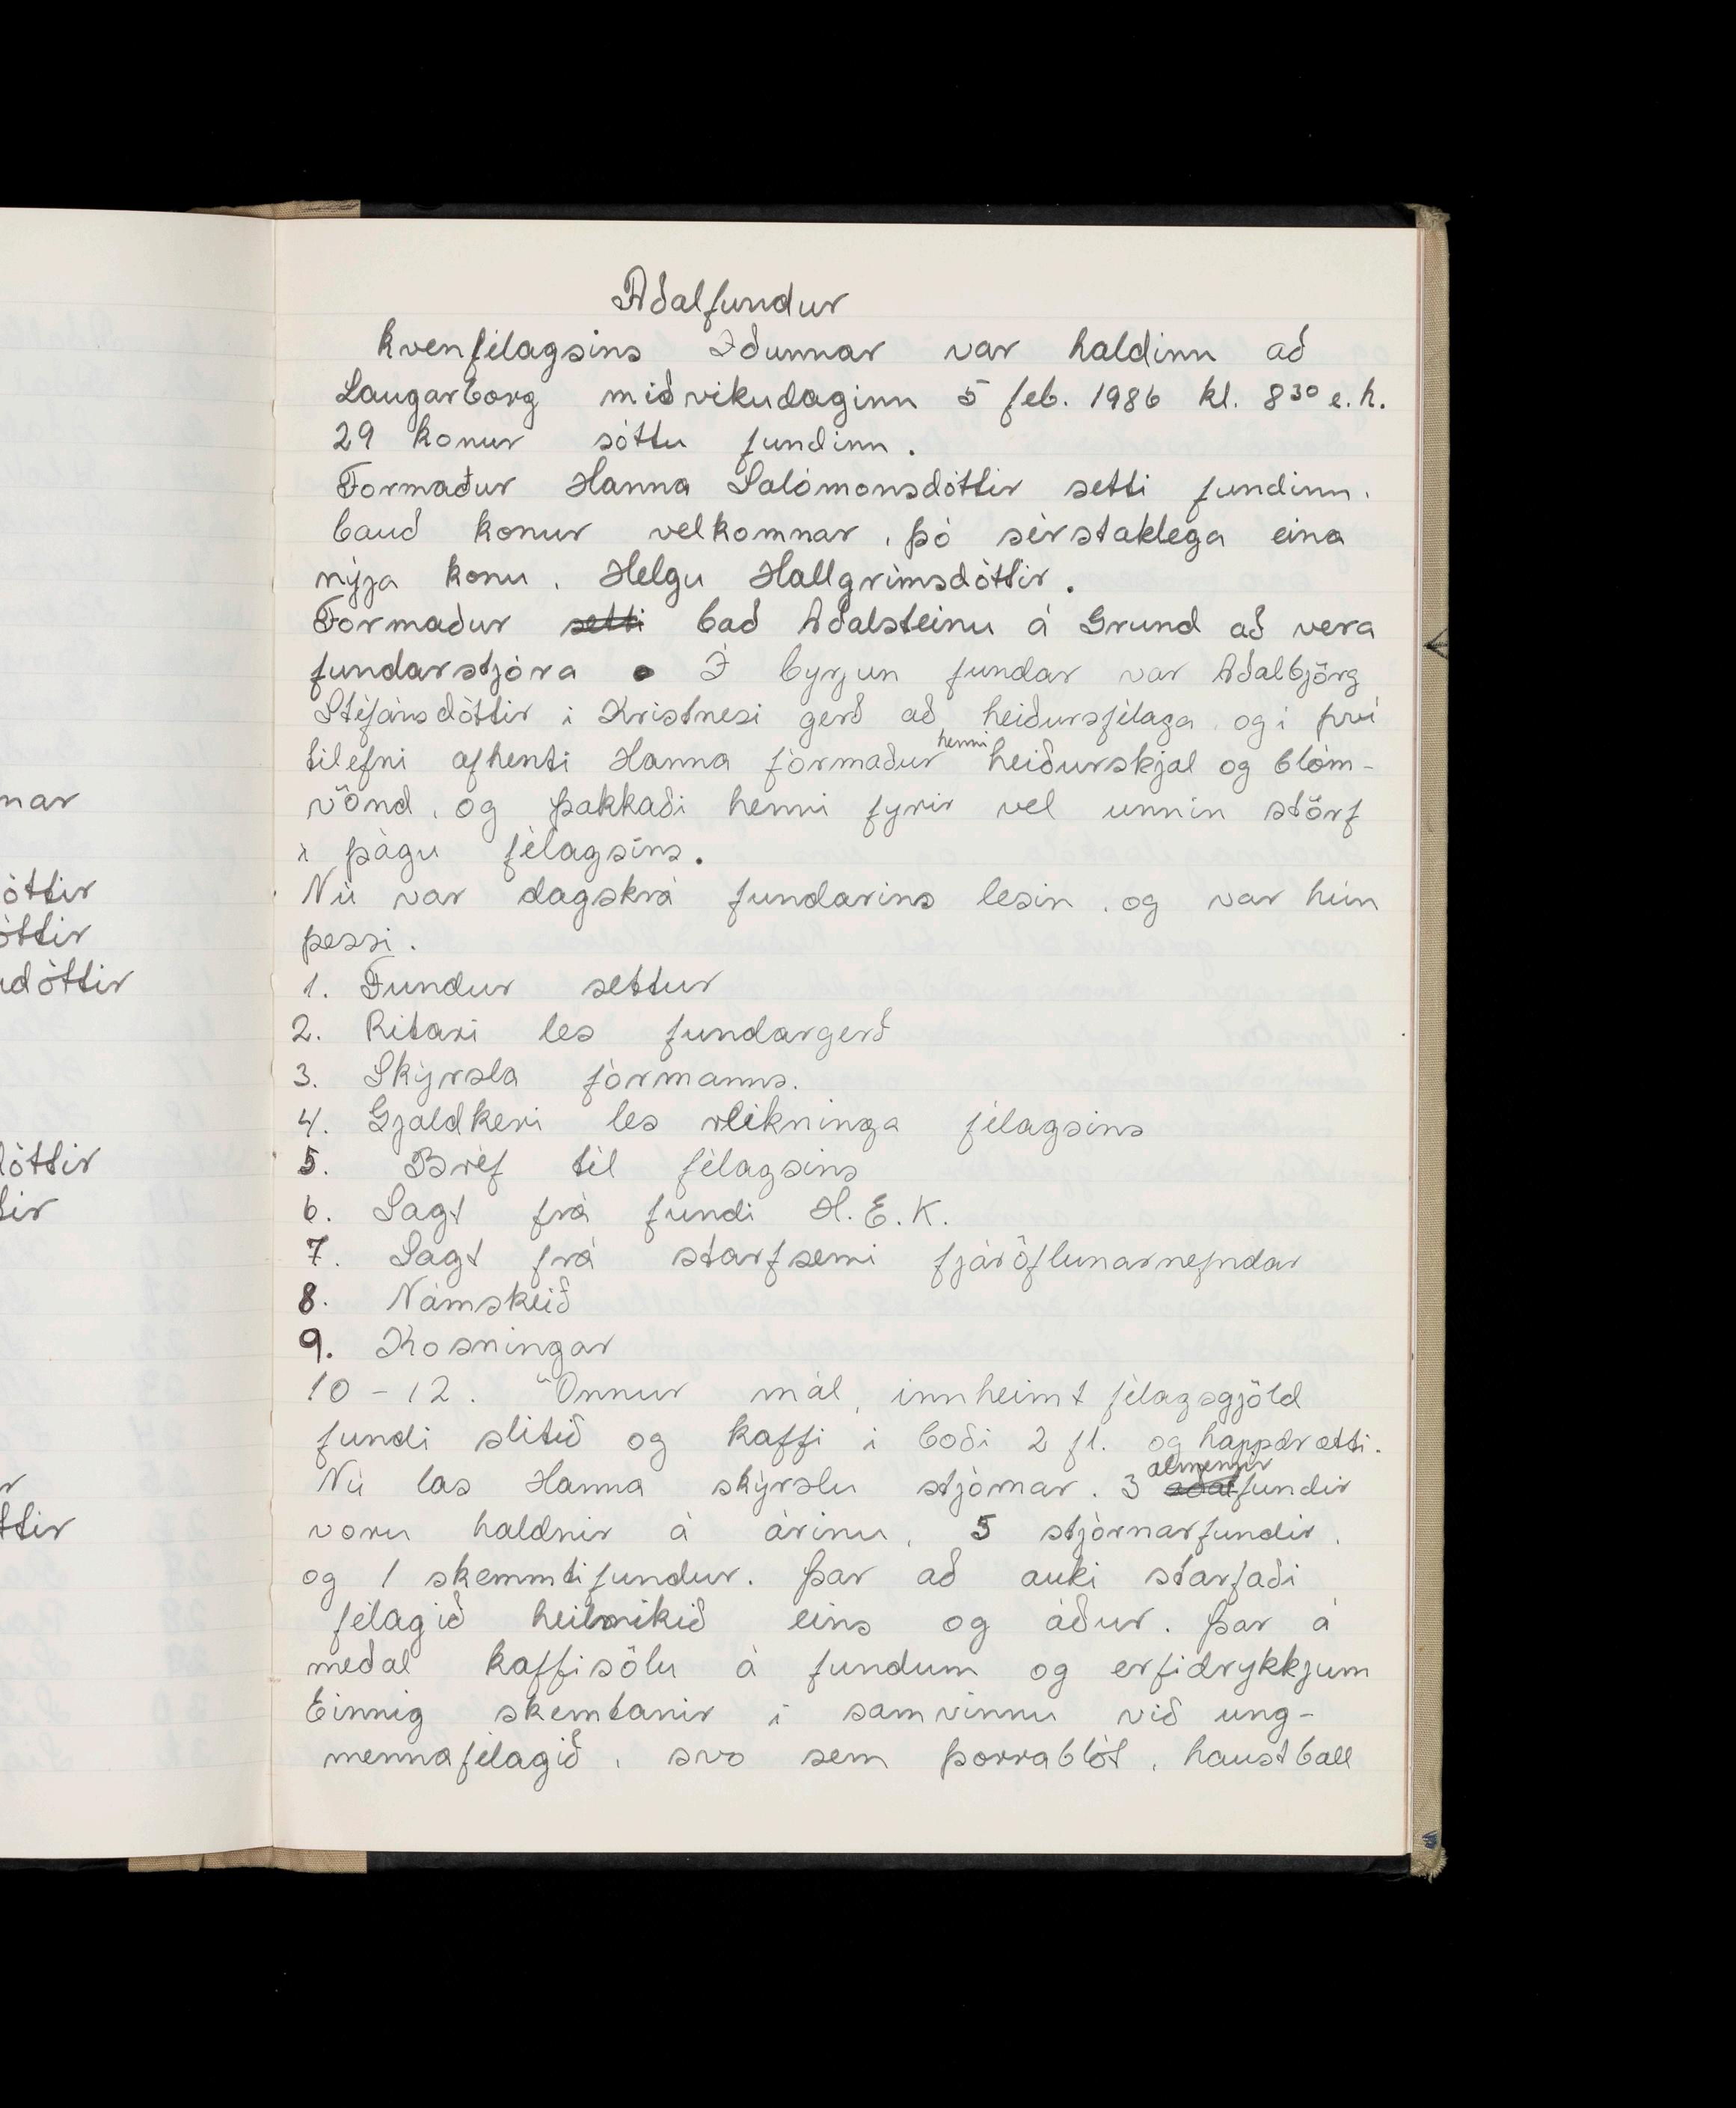 Aðalfundur
kvenfélagsins Iðunnar var haldinn að
Laugarborg miðvikudaginn 5 feb. 1986 kl. 8 30 e.h.
29 konur sóttu fundinn.
Formaður Hanna Salómonsdóttir setti fundinn,
bauð konur velkomnar, þó sérstaklega eina
nýja konu, Helgu Hallgrímsdóttir.
Formaður setti bað Aðalsteinu á Grund að vera
fundarstjóra . Í byrjun fundar var Aðalbjörg
Stefánsdóttir í Kristnesi gerð að heiðursfélaga, og í því
tilefni afhenti Hanna formaður henni heiðurskjal og blóm-
vönd, og þakkaði henni fyrir vel unnin störf
í þágu félagsins.
Nú var dagskrá fundarins lesin, og var hún
þessi.
1. Fundur settur
2. Ritari les fundargerð
3. Skýrsla formanns.
4. Gjaldkeri les reikninga félagsins
5. Bréf til félagsins
6. Sagt frá fundi H.E.K.
7. Sagt frá starfsemi fjáröflunarnefndar
8. Námskeið
9. Kosningar
10-12. Önnur mál, innheimt félagsgjöld
fundi slitið og kaffi í boði 2 fl. og happdrætti.
Nú las Hanna skýrslu stjórnar. 3 aðal almennir fundir
voru haldnir á árinu, 5 stjórnarfundir,
og 1 skemmtifundur. Þar að auki starfaði
félagið heilmikið eins og áður. Þar á
meðal kaffisölu á fundum og erfidrykkjum
Einnig skemtanir í samvinnu við ung-
mennafélagið, svo sem þorrablót, haustball
nar
óttir
óttir
dóttir
dóttir
tir
r
ttir